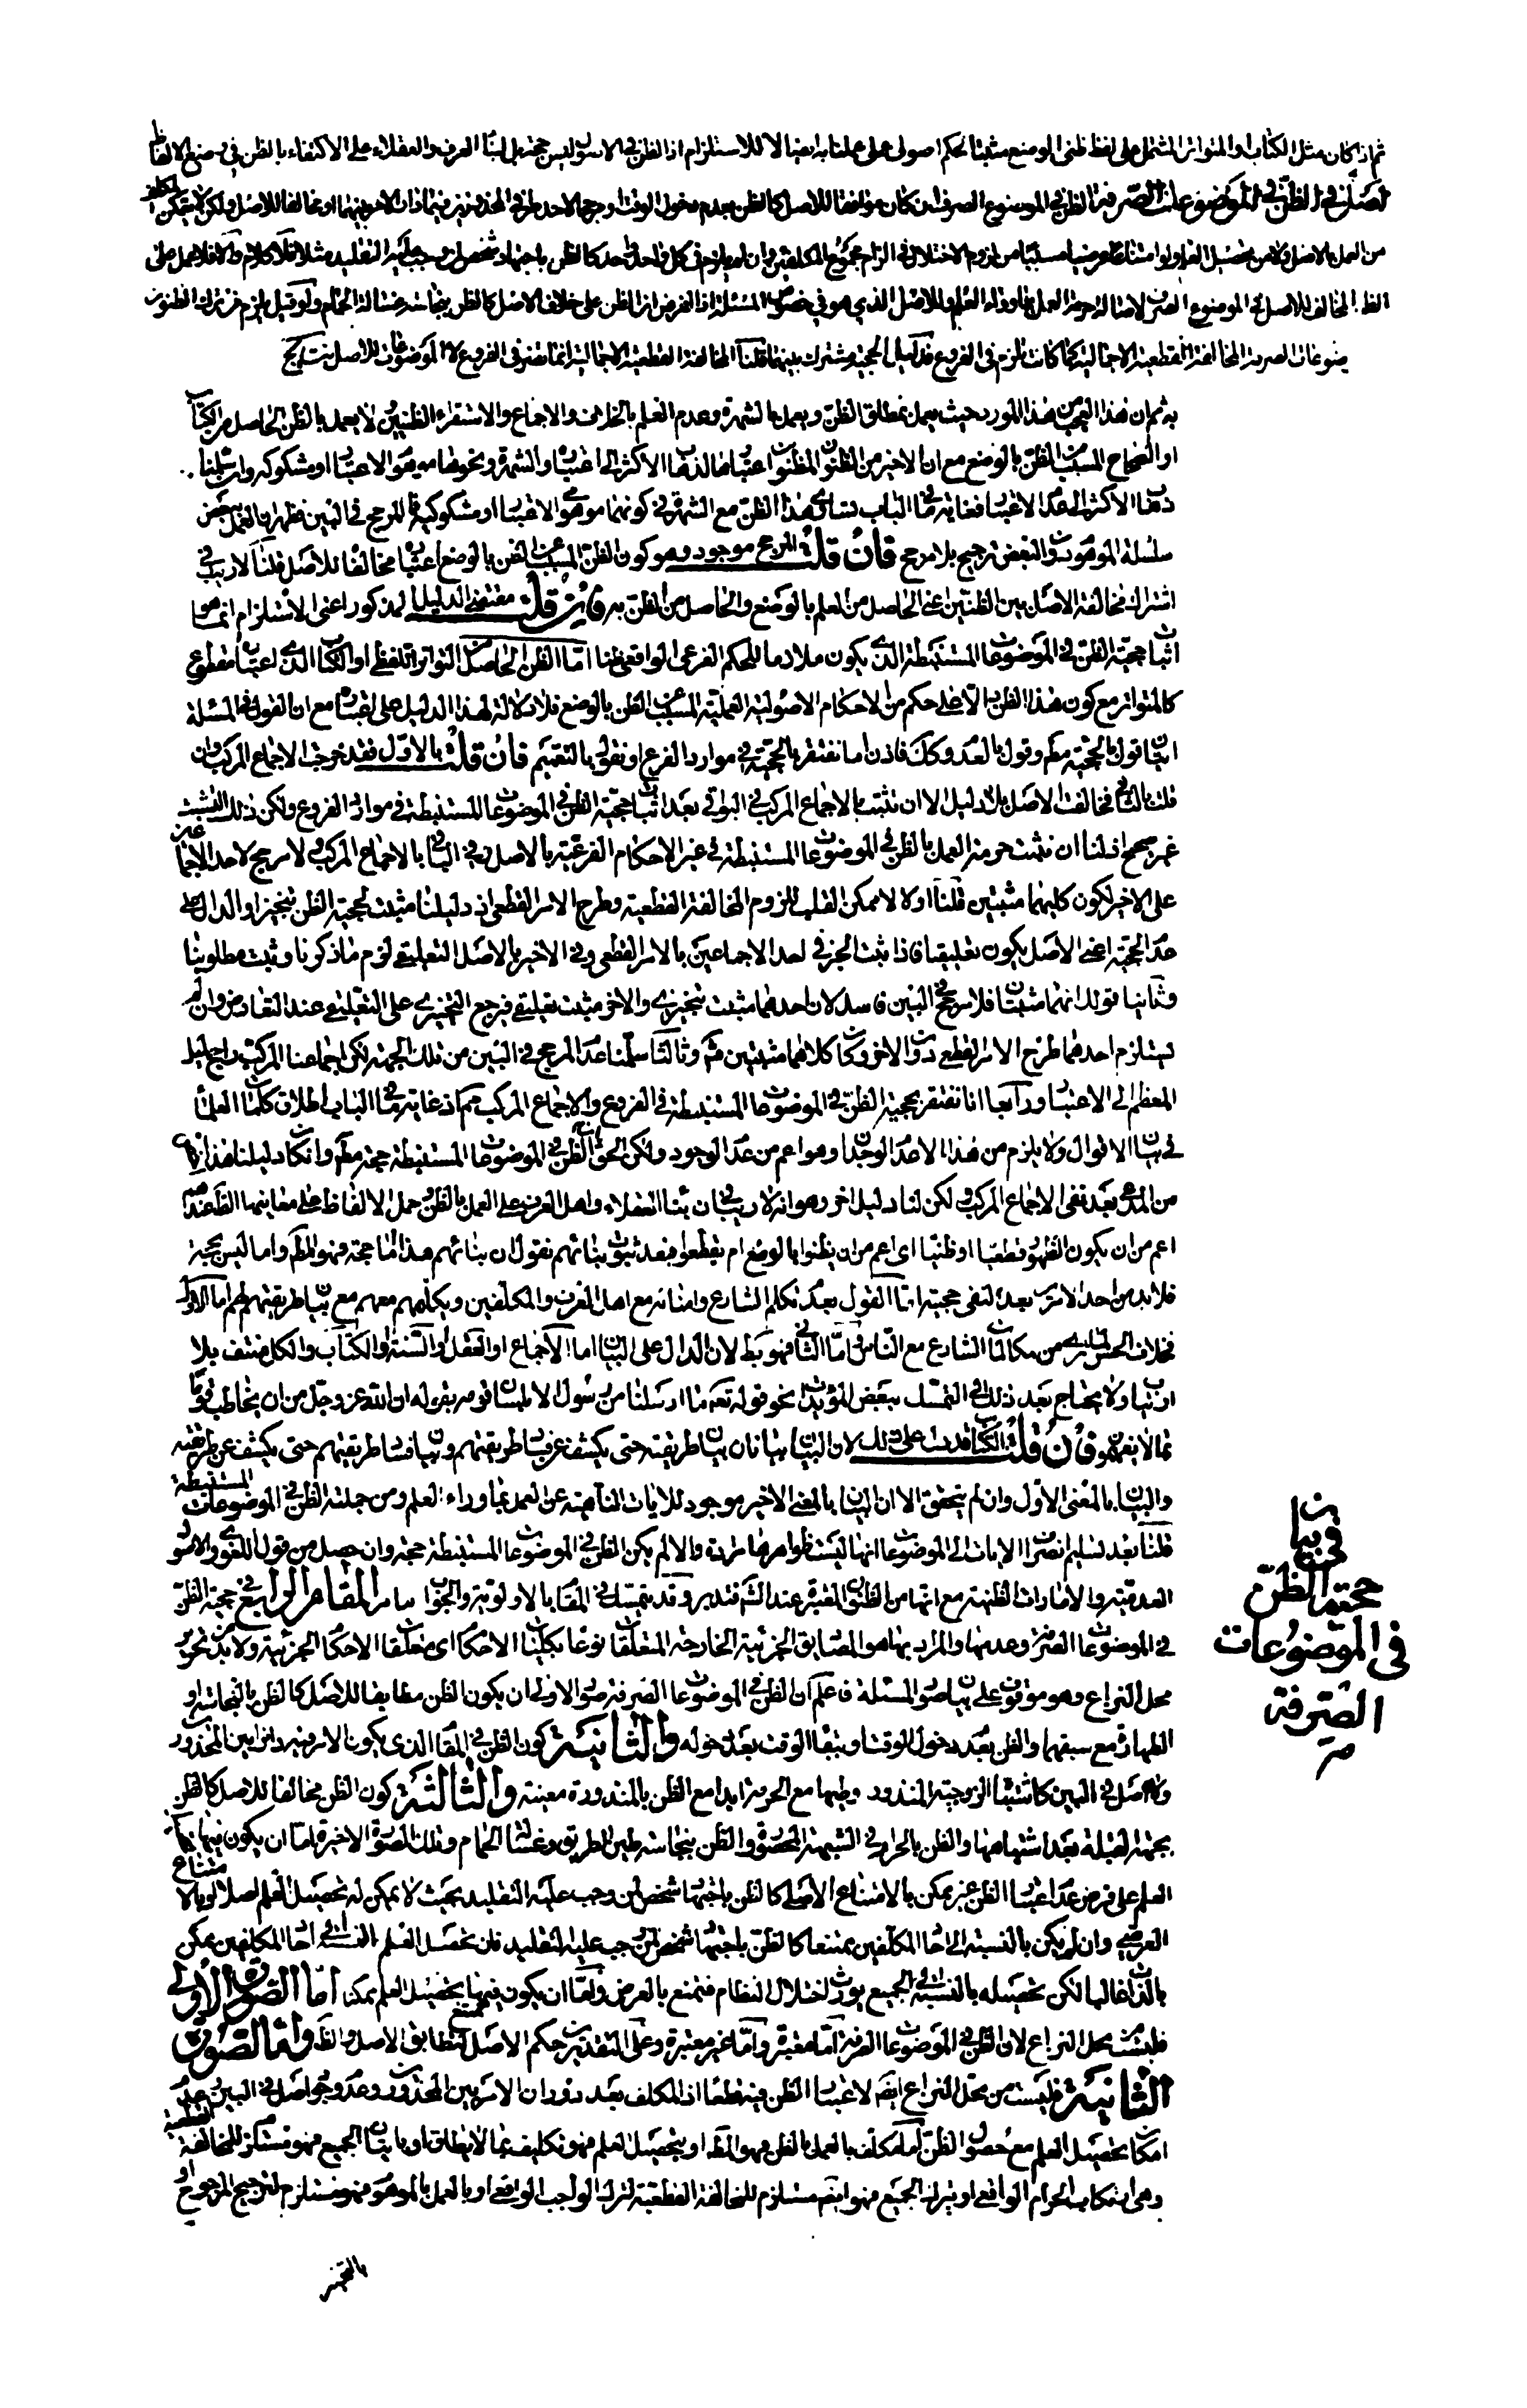 ثم اذ كان مثل الكتاب او المتواتر المشتمل على لفظ ظنى الوضع مثبتا لحكم اصولى على علمنا به ايضا لا للاستلزام اذ الظن فى الاصول ليس حجة بل لبناء العرف والعقلاء على الاكتفاء بالظن فى وضع الالفاظ
اصل فى الظن فى الموضوعات الصرفة الظن فى الموضوع الصرف ان كان موافقا للاصل كالظن بعدم دخول الوقت
من العمل بالاصل ولا من تحصيل العلم ولو امتناعا عرضيا مسببا من لزوم الاختلال فى الزام جميع المكلفين وان لم يلزم فى كل واحد واحد كالظن باجتهاد شخص لمن وجب عليه التقليد مثلا فلا كلام
الظن المخالف للاصل فى الموضوع الصرف لاصالة حرمة العمل بما وراء العلم وللاصل الذى هو فى خصوص المسئلة اذ الفرض ان الظن على خلاف الاصل كالظن بنجاسة غسالة الحمام ولو قيل يلزم من ترك الظنون
الموضوعات الصرفة المخالفة القطعية الاجمالية كما كانت تلزم فى الفروع فدليل الحجية مشترك بينهما قلنا المخالفة القطعية الاجمالية انما تضر فى الفروع لا الموضوعات للاصل
به ثم ان هذا العجب من هذا المورد حيث يعمل بمطلق الظن ويعمل بالشهرة وعدم العلم بالخلاف والاجماع والاستقراء الظنيين ولا يعمل بالظن الحاصل من الكتاب
او الصحاح المسبب من الظن بالوضع مع ان الاخير من الظنون المظنون اعتبارها لذهاب الاكثر الى اعتباره والشهرة ونحوها موهوم الاعتبار او مشكوكه وان سلمنا
ذهاب الاكثر الى عدم الاعتبار فغاية ما فى الباب تساوى هذا الظن مع الشهرة فى كونهما موهومى الاعتبار او مشكوكيه فلا مرجح فى البين فظهر ان العمل ببعض
سلسلة الموهومات دون البعض ترجيح بلا مرجح فان قلت المرجح موجود وهو كون الظن المسبب عن الظن بالوضع اعتباره مخالفا للاصل قلنا لا ريب فى
اشتراك مخالفة الاصل بين الظنين اعنى الحاصل من العلم بالوضع والحاصل من الظن به فان قلت مقتضى الدليل المذكور اعنى الاستلزام انما هو
اثبات حجية الظن فى الموضوعات المستنبطة الذى يكون ملازما للحكم الفرعى الواقعى ظنا اما الظن الحاصل من التواتر اللفظى او الكتاب الذى اعتباره مقطوع
كالمتواتر مع كون هذا الظن دالا على حكم من الاحكام الاصولية العملية المسبب عن الظن بالوضع فلا دلالة لهذا الدليل على اعتباره مع ان القول فى المسئلة
اثنان قول بالحجية مطلقا وقول بالعدم وكك فاذن اما نقتصر بالحجية فى موارد الفرع او نقول بالتعميم فان قلت بالاول فقد خرجت الاجماع المركب وان
قلت بالثانى فخالفت الاصل بلا دليل الا ان تثبت بالاجماع المركب فى البواقى بعد اثبات حجية الظن فى الموضوعات المستنبطة فى موارد الفروع ولكن ذلك التشبث
غير صحيح اذ لنا ان نثبت حرمة العمل بالظن فى الموضوعات المستنبطة فى غير الاحكام الفرعية بالاصل وفى الباقى بالاجماع المركب ولا مرجح لاحد الاجماعين
على الاخر لكون كليهما مثبتين قلنا اولا لا يمكن القلب للزوم المخالفة القطعية وطرح الامر القطعى اذ دليلنا مثبت لحجية الظن تنجيزا والدال على
عدم الحجية اعنى الاصل يكون تعليقيا فاذا ثبت الجزء فى احد الاجماعين بالامر القطعى وفى الاخر بالاصل التعليقى لزم ما ذكرنا وثبت مطلوبنا
وثانيا قولك انهما مثبتان فلا مرجح فى البين فاسد لان احدهما مثبت تنجيزى والاخر مثبت تعليقى فيرجح التنجيزى على التعليقى عند التعارض وان لم
يستلزم احدهما طرح الامر القطعى دون الاخر وكان كلاهما مثبتين وثالثا سلمنا عدم المرجح فى البين من تلك الجهة لكن اجماعنا المركب راجح لميل
المعظم الى الاعتبار ورابعا انا نقتصر بحجية الظن فى الموضوعات المستنبطة فى الفروع والاجماع المركب اذ غاية ما فى الباب اطلاق كلمات العلماء
فى بيان الاقوال ولا يلزم من هذا الا عدم الوجدان وهو اعم من عدم الوجود ولكن الحق ان الظن فى الموضوعات المستنبطة حجة مطلقا وان كان دليلنا هذا
من المدعى بعد نفى الاجماع المركب لكن لنا دليل اخر وهو انه لا ريب فى ان بناء العقلاء واهل العرف على العمل بالظن وحمل الالفاظ على معانيها الظاهرة عندهم
اعم من ان يكون الظهور قطعيا او ظنيا اى اعم من ان يظنوا بالوضع ام يقطعوا فبعد ثبوت بنائهم نقول ان بنائهم هذا اما حجة فهو المطلوب واما ليس بحجة
فلا بد من احد الامرين بعد نفى حجيته اما القول بعدم تكلم الشارع وامنائه مع اهل العرف والمكلفين وبكلامهم معهم مع بيان طريقتهم لهم اما الاول
فخلاف الحس من مكالمات الشارع مع الناس واما الثانى فهو بط لان الدال على البيان اما الاجماع او العقل او السنة والكتاب والكل منتف بلا
ارتياب ولا يحتاج بعد ذلك الى التمسك ببعض المؤيدات نحو قوله تعالى ما ارسلنا من رسول الا بلسان قومه بقوله ان الله عز وجل من ان يخاطب قوما
بما لا يفهمون فان قلت الكتاب قد دل على ذلك لان البيان بيانان بيان طريقته حتى يكشف عن فساد طريقتهم وبيان فساد طريقتهم حتى يكشف عن طريقته
والبيان بالمعنى الاول وان لم يتحقق الا ان البيان بالمعنى الاخير موجود للايات الناهية عن العمل بما وراء العلم ومن جملته الظن فى الموضوعات المستنبطة
قلنا بعد تسليم انصراف الايات الى الموضوعات انها ليست ظواهرها مرادة والا لم يكن الظن فى الموضوعات المستنبطة حجة وان حصل من قول اللغوى والاصول
العدمية والامارات الظنية مع انها من الظنون المعتبرة عند الكل فتدبر وقد يتمسك فى المقام بالاولوية والجواب ما مر المقام الرابع فى حجية الظن
فى الموضوعات الصرفة وعدمها والمراد بها هو المصاديق الجزئية الخارجة المتعلقات نوعا بكليات الاحكام اى متعلقات الاحكام الجزئية ولا بد من تحرير
محل النزاع وهو موقوف على بيان صور المسئلة فاعلم ان الظن فى الموضوعات الصرفة صور الاولى ان يكون الظن مطابقا للاصل كالظن بالنجاسة او
الطهارة مع سبقهما والظن بعدم دخول الوقت او ببقاء الوقت بعد دخوله والثانية كون الظن فى المقام الذى يكون الامر فيه دائرا بين المحذورين
ولا اصل فى البين كاشتباه الزوجة المنذور وطيها مع الحرمة ابدا مع الظن بالمنذورة معينة والثالثة كون الظن مخالفا للاصل كالظن
بجهة القبلة بعد اشتباهها والظن بالحرام فى الشبهة المحصورة والظن بنجاسة طين الطريق وغسالة الحمام وتلك الصورة الاخيرة اما ان يكون فيها
العلم على فرض عدم اعتبار الظن غير ممكن بالامتناع الاصلى كالظن باجتهاد شخص لمن وجب عليه التقليد بحيث لا يمكن له تحصيل العلم اصلا او بالامتناع
العرضى وان لم يكن بالنسبة الى احاد المكلفين ممتنعا كالظن باجتهاد شخص لمن وجب عليه التقليد فان تحصيل العلم بالنسبة الى احاد المكلفين ممكن
بالذات غالبا لكن تحصيله بالنسبة الى الجميع يورث اختلال النظام فتمنع بالعرض واما ان يكون فيها تحصيل العلم ممكنا اما الصورة الاولى
فليست محل النزاع لان الظن فى الموضوعات الصرفة اما معتبرة واما غير معتبرة وعلى التقديرين حكم الاصل متبع لتطابق الاصل والظن واما الصورة
الثانية فليست من محل النزاع ايضا لاعتبار الظن فيه قطعا اذ المكلف بعد دوران الامر بين المحذورين وعدم وجود اصل فى البين وعدم
امكان تحصيل العلم مع حصول الظن اما مكلف بالعمل بالظن فهو المطلوب او بتحصيل العلم فهو تكليف بما لا يطاق او باتيان الجميع فهو مستلزم للمخالفة القطعية
وهى ارتكاب الحرام الواقعى او بترك الجميع فهو ايضا مستلزم للمخالفة القطعية لترك الواجب الواقعى او بالعمل بالموهوم فهو مستلزم لترجيح المرجوح او
بالتخيير
فى بيان
حجية الظن
فى الموضوعات
الصرفة